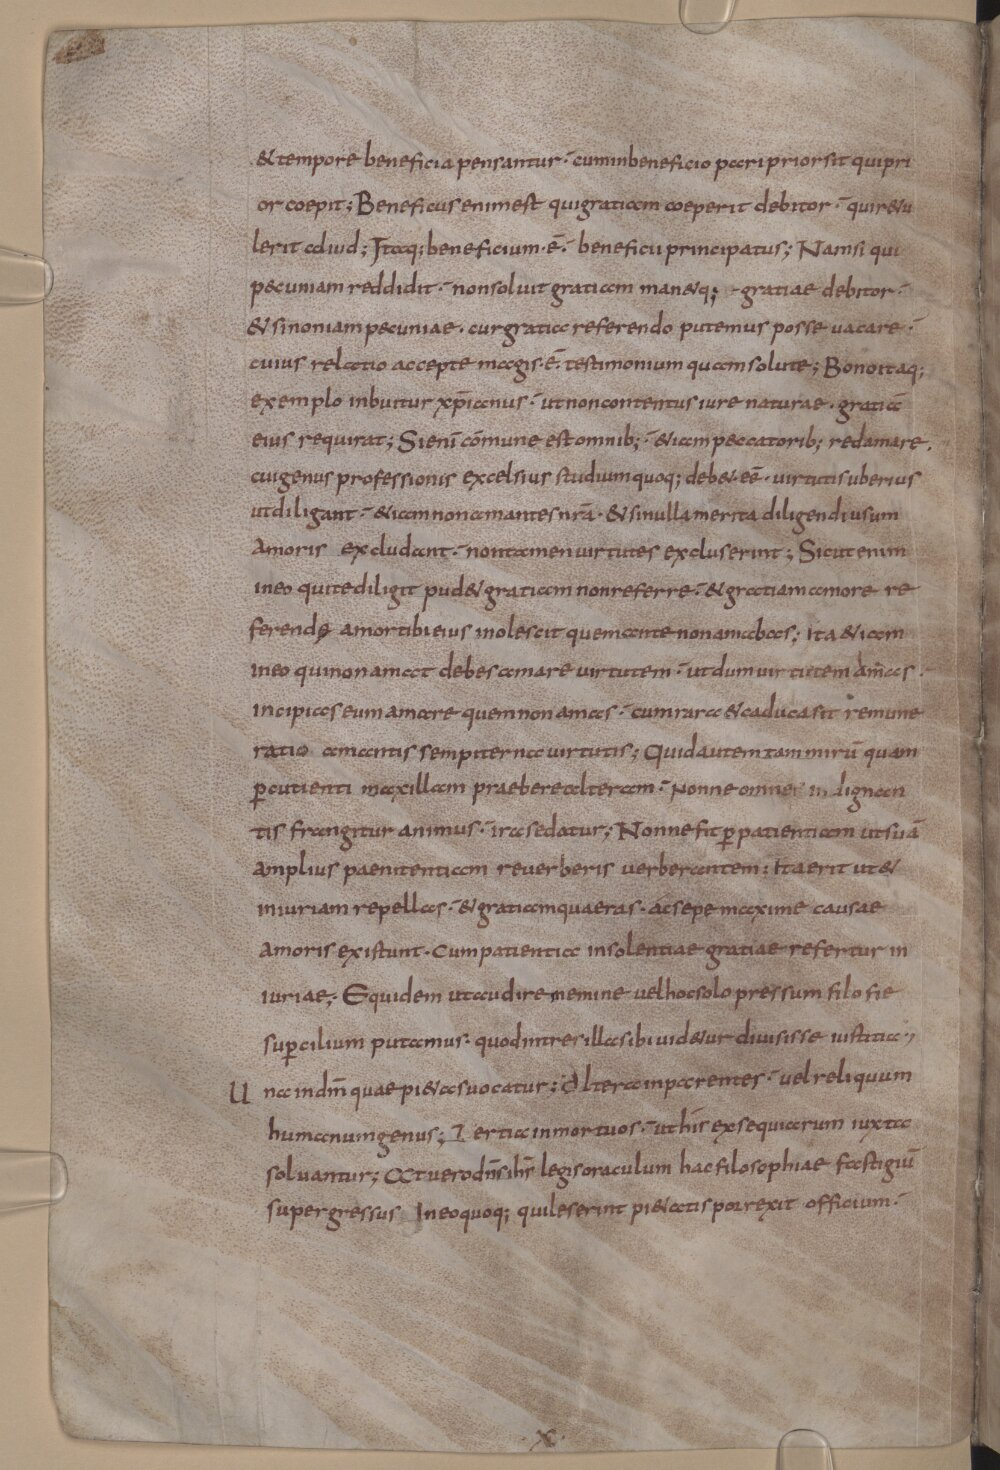 &tempore beneficia pensantur· cuminbeneficio pari priorsit quipri
or coepit; Beneficus enim est quigratiam coeperit debitor· quir&u
lerit aduid; Itaq; beneficium·ē· beneficii principatus; Nam si qui
pecuniam reddidit· nonsoluit gratiam man&q; gratiae debitor·
& sinoniam pecuniae· curgratia referendo putemus posse uacare·
cuius relatio accepte magis·ē· testimonium quam solute; Bonoitaq;
exemplo inbuitur xp̄ianus· utnoncontentus iure naturae· gratia
eius requirat; Sienī cōmune est omnib;· &iam peccatorib; redamare.
cuigenus professionis excelsius studium quoq; deb&·eē· uirtutis uberius
utdiligant· &iam nonamantes nrā· & sinulla merita diligendi usum
amoris excludant· nontamen uirtutes excluserint; Sicut enim
ineo quitediligit pud& gratiam nonreferre· & gratiam amore re
ferendę amortibi eius inolescit quem ante nonamabas; Ita &iam
ineo quinon amat debes amare uirtutem· utdum uirtutem am̄as·
incipias eum amare quem non amas· cum rara & caduca sit remune
ratio amantis sempiterna uirtutis; Quid autem tam mirū quam
p̄cutienti maxillam praebere alteram· Nonne omnes indignan
tis frangitur animus· ira sedatur; Nonne fit p̄patientiam utsuā
amplius paenitentiam reuerberis uerberantem; Ita erit ut &
iniuriam repellas· & gratiam quaeras· ac sepe maxime causae
amoris existunt· Cum patientia insolentiae gratiae refertur in
iuriae;· Equidem ut audire memine uel hoc solo pressum filo fie
sup̄cilium putamus· quod intres illa sibi uid&ur diuisisse iustitia·,
U na indm̄ quae pi&as uocatur; Altera inparentes· uel reliquum
humanum genus; Tertia in mortuos· ut his exsequiarum iuxta
soluantur; At uero dn̄s ihs legis oraculum hac filosophiae fastigiū
supergressus In eoquoq; quileserint pi&atis porrexit officium·
x·